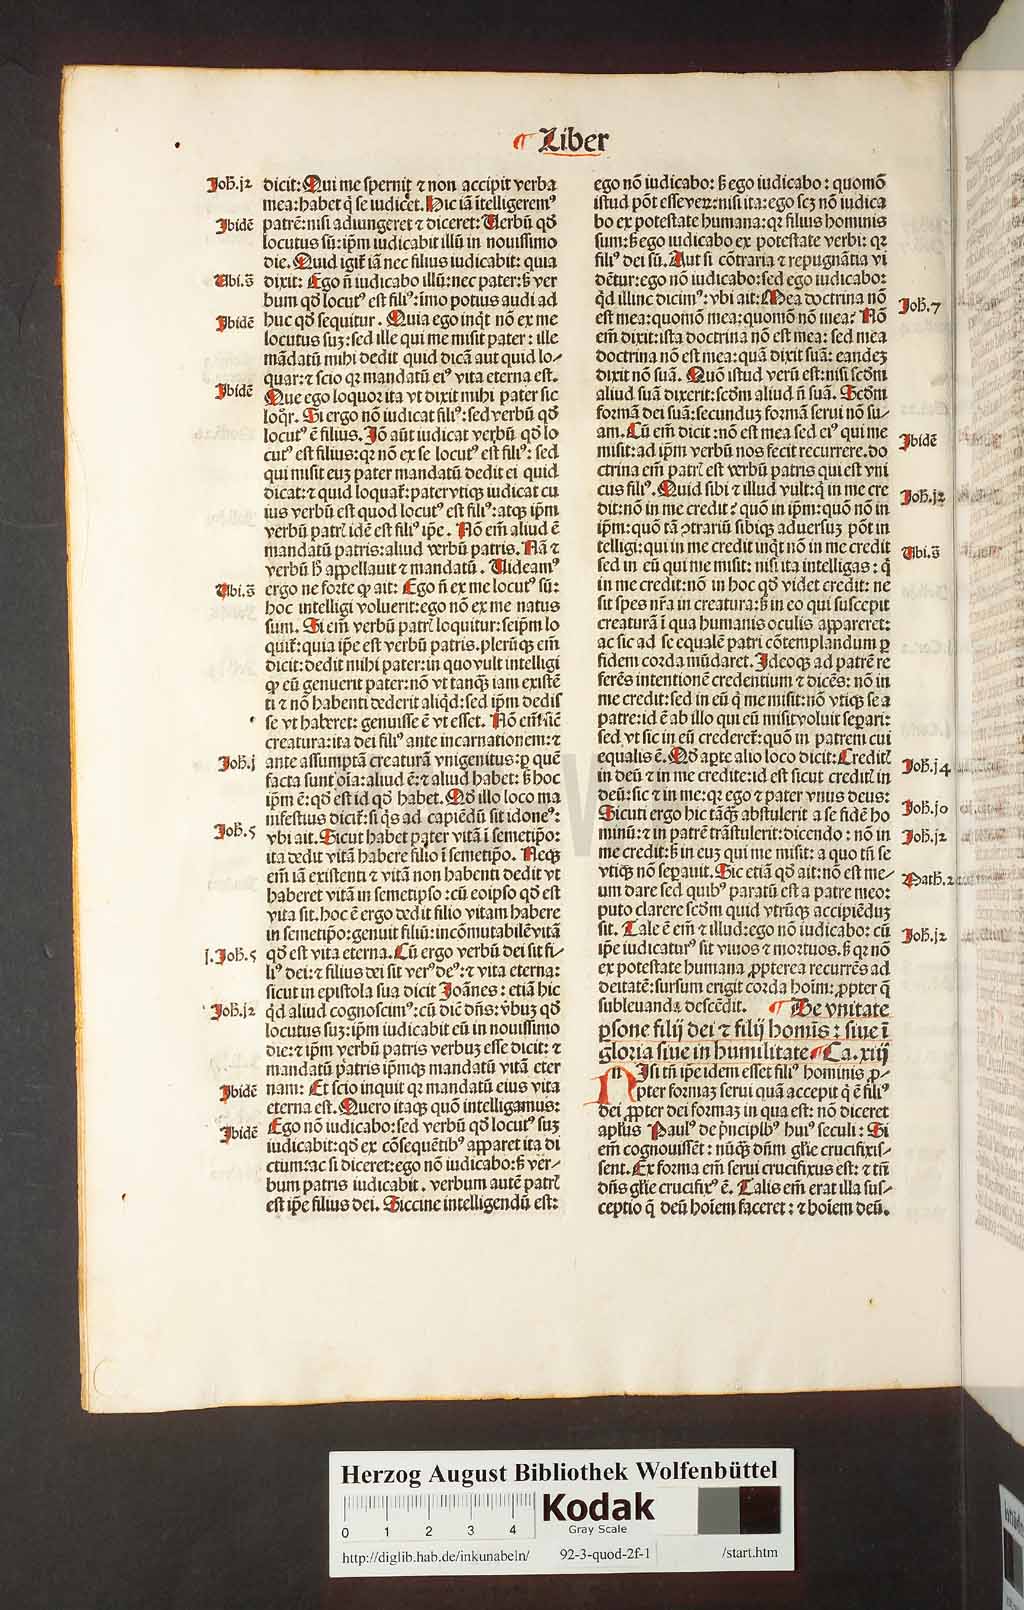 ¶ Liber
Joh̄.j2
dicit: Qui me spernit ⁊ non accipit verba
mea: habet q̇ se iudicet. Hic iā ītelligeremꝰ
Jbidē
patrē: nisi adiungeret ⁊ diceret: Uerbū qđ
locutus sū: ip̄m iudicabit illū in nouissimo
die. Quid igit̄ iā nec filius iudicabit: quia
Ubi.s̄
dixit: Ego n̄ iudicabo illū: nec pater: ß ver
bum qđ locutꝰ est filiꝰ: imo potius audi ad
Jbidē
huc qđ sequitur. Quia ego inqt̄ nō ex me
locutus suꝫ: sed ille qui me misit pater: ille
mādatū mihi dedit quid dicā aut quid lo⸗
quar: ⁊ scio qꝛ mandatū eiꝰ vita eterna est.
Jbidē
Que ego loquor ita vt dixit mihi pater sic
loq̄r. Si ergo nō iudicat filiꝰ: sed verbū qđ
locutꝰ ē filius. Jō aūt iudicat verbū qđ lo
cutꝰ est filius: qꝛ nō ex se locutꝰ est filiꝰ: sed
qui misit euꝫ pater mandatū dedit ei quid
dicat: ⁊ quid loquat̄: pater vtiqꝫ iudicat cu
ius verbū est quod locutꝰ est filiꝰ: atqꝫ ip̄m
verbū patrꝭ idē est filiꝰ ip̄e. Nō em̄ aliud ē
mandatū patris: aliud verbū patris. Nā ⁊
verbū h̄ appellauit ⁊ mandatū. Uideamꝰ
Ubi.s̄
ergo ne forte ꝙ ait: Ego n̄ ex me locutꝰ sū:
hoc intelligi voluerit: ego nō ex me natus
sum. Si em̄ verbū patrꝭ loquitur: seip̄m lo
quit̄: quia ip̄e est verbū patris. plerūqꝫ em̄
dicit: dedit mihi pater: in quo vult intelligi
ꝙ eū genuerit pater: nō vt tanqꝫ iam existē
ti ⁊ nō habenti dederit aliqđ: sed ip̄m dedis
se vt haberet: genuisse ē vt esset. Nō em̄ sic̄
creatura: ita dei filiꝰ ante incarnationem: ⁊
Joh̄.j
ante assumptā creaturā vnigenitus: ꝑ quē
facta sunt oīa: aliud ē: ⁊ aliud habet: ß hoc
ip̄m ē: qđ est id qđ habet. Qđ illo loco ma
nifestius dicit̄: si q̇s ad capiēdū sit idoneꝰ:
Joh̄.5
vbi ait. Sicut habet pater vitā ī semetip̄o:
ita dedit vitā habere filio ī semetip̄o. Neqꝫ
em̄ iā existenti ⁊ vitā non habenti dedit vt
haberet vitā in semetipso: cū eoipso qđ est
vita sit. hoc ē ergo dedit filio vitam habere
in semetip̄o: genuit filiū: incōmutabilē vitā
j.Joh̄.5
qđ est vita eterna. Cū ergo verbū dei sit fi⸗
liꝰ dei: ⁊ filius dei sit verꝰ deꝰ: ⁊ vita eterna:
sicut in epistola sua dicit Joānes: etiā hic
Joh̄.j2
q̇d aliud cognoscimꝰ: cū dic̄ dn̄s: v̓buꝫ qđ
locutus suꝫ: ip̄m iudicabit eū in nouissimo
die: ⁊ ip̄m verbū patris verbuꝫ esse dicit: ⁊
mandatū patris ip̄mqꝫ mandatū vitā eter
Jbidē
nam: Et scio inquit qꝛ mandatū eius vita
eterna est. Quero itaqꝫ quō intelligamus:
Jbidē
Ego nō iudicabo: sed verbū qđ locutꝰ suꝫ
iudicabit: qđ ex cōsequētibꝰ apparet ita di
ctum: ac si diceret: ego nō iudicabo: ß ver⸗
bum patris iudicabit. verbum autē patrꝭ
est ip̄e filius dei. Siccine intelligendū est:
ego nō iudicabo: ß ego iudicabo: quomō
istud pōt esse veꝝ: nisi ita: ego scꝫ nō iudica
bo ex potestate humana: qꝛ filius hominis
sum: ß ego iudicabo ex potestate verbi: qꝛ
filiꝰ dei sū. Aut si cōtraria ⁊ repugnātia vi
dētur: ego nō iudicabo: sed ego iudicabo:
q̇d illinc dicimꝰ: vbi ait: Mea doctrina nō
Joh̄.7
est mea: quomō mea: quomō nō mea? Nō
em̄ dixit: ista doctrina nō est mea: sed mea
doctrina nō est mea: quā dixit suā: eandeꝫ
dixit nō suā. Quō istud verū est: nisi scđm
aliud suā dixerit: scđm aliud n̄ suā. Scđm
formā dei suā: secunduꝫ formā serui nō su⸗
am. Cū em̄ dicit: nō est mea sed eiꝰ qui me
Jbidē
misit: ad ip̄m verbū nos fecit recurrere. do
ctrina em̄ patrꝭ est verbū patris qui est vni
cus filiꝰ. Quid sibi ⁊ illud vult: q̇ in me cre
Joh̄.j2
dit: nō in me credit? quō in ip̄m: quō nō in
ip̄m: quō tā ꝯtrariū sibiqꝫ aduersuꝫ pōt in
telligi: qui in me credit inqt̄ nō in me credit
Ubi.s̄
sed in eū qui me misit: nisi ita intelligas: q̇
in me credit: nō in hoc qđ videt credit: ne
sit spes nr̄a in creatura: ß in eo qui suscepit
creaturā ī qua humanis oculis appareret:
ac sic ad se equalē patri cōtemplandum ꝑ
fidem corda mūdaret. Jdeoqꝫ ad patrē re
ferēs intentionē credentium ⁊ dicēs: nō in
me credit: sed in eū q̇ me misit: nō vtiqꝫ se a
patre: id ē ab illo qui eū misit voluit separi:
sed vt sic in eū crederet̄: quō in patrem cui
equalis ē. Qđ apte alio loco dicit: Creditꝭ in
Joh̄.j4
in deū ⁊ in me credite: id est sicut creditꝭ in
deū: sic ⁊ in me: qꝛ ego ⁊ pater vnus deus:
Joh̄.jo
Sicuti ergo hic tāqꝫ abstulerit a se fidē ho
Joh̄.j2
minū: ⁊ in patrē trāstulerit: dicendo: nō in
me credit: ß in euꝫ qui me misit: a quo tn̄ se
vtiqꝫ nō separauit. Sic etiā qđ ait: nō est me⸗
Math̄.2
um dare sed quibꝰ paratū est a patre meo:
puto clarere scđm quid vtrūqꝫ accipiēduꝫ
sit. Tale ē em̄ ⁊ illud: ego nō iudicabo: cū
Joh̄.j2
ip̄e iudicaturꝰ sit viuos ⁊ mortuos. ß qꝛ nō
ex potestate humana ꝓpterea recurrēs ad
deitatē: sursum erigit corda hoīm: ꝓpter q̄
subleuanda descēdit. ¶ De vnitate
ꝑsone filij dei ⁊ filij homīs: siue ī
gloria siue in humilitate ¶ Ca.xiij
NJsi tn̄ ip̄e idem esset filiꝰ hominis ꝓ⸗
pter formaꝫ serui quā accepit q̇ ē filiꝰ
dei ꝓpter dei formaꝫ in qua est: nō diceret
apl̄us Paulꝰ de p̄ncipibꝰ huiꝰ seculi: Si
em̄ cognouissēt: nūqꝫ dn̄m gl̄ie crucifixis⸗
sent. Ex forma em̄ serui crucifixus est: ⁊ tn̄
dn̄s gl̄ie crucifixꝰ ē. Talis em̄ erat illa sus⸗
ceptio q̄ deū hoīem faceret: ⁊ hoīem deū.
Herzog August Bibliothek Wolfenbüttel
0 1 2 3 4
Kodak
Gray Scale
http://diglib.hab.de/inkunabeln/ 92-3-quod-2f-1 /start.htm